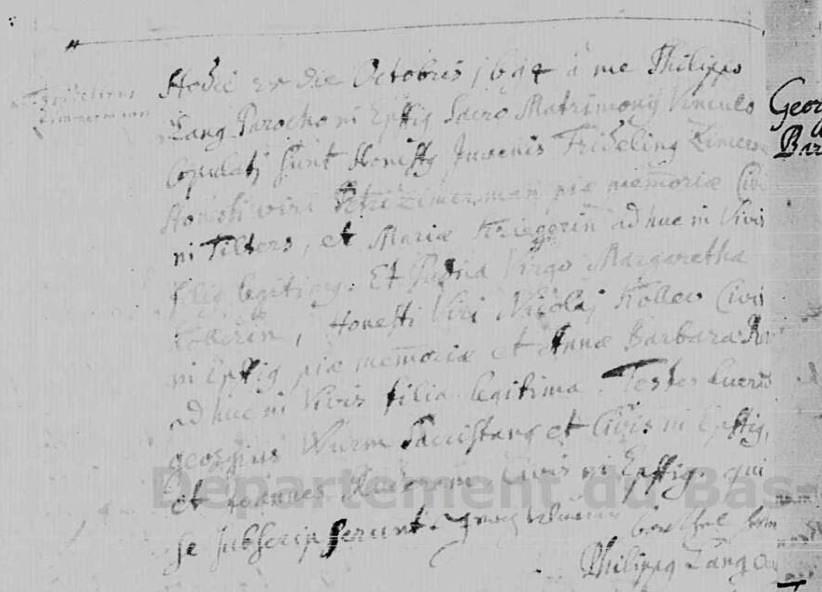 Fridelinus
Zimmerman
Hodie die Octobris 1694 à me Philippo
Lang Parocho in Epffig Sacro Matrimonij Vinculo
Copulati sunt Honestus Juvenis Fridelinus Zimerm
Honesti viri Petri Zimerman piæ memoriæ Civi
in , et Mariæ Kriegerin ad huc in Vivis
filius legitimus. Et Pudica Virgo Margaretha
Kollerin, Honesti Viri Nicolaj Koller Civis
in Epffig piæ memoriæ et Annæ Barbaræ
ad huc in Vivis filia legitima. Testes fuerunt
georgius Wurm Sacristanus et Civis in Epffig,
et Joannes Civis in Epffig. qui
se subscripserunt.
Philippus Lang
Geor
Bar
Departement du Bas-